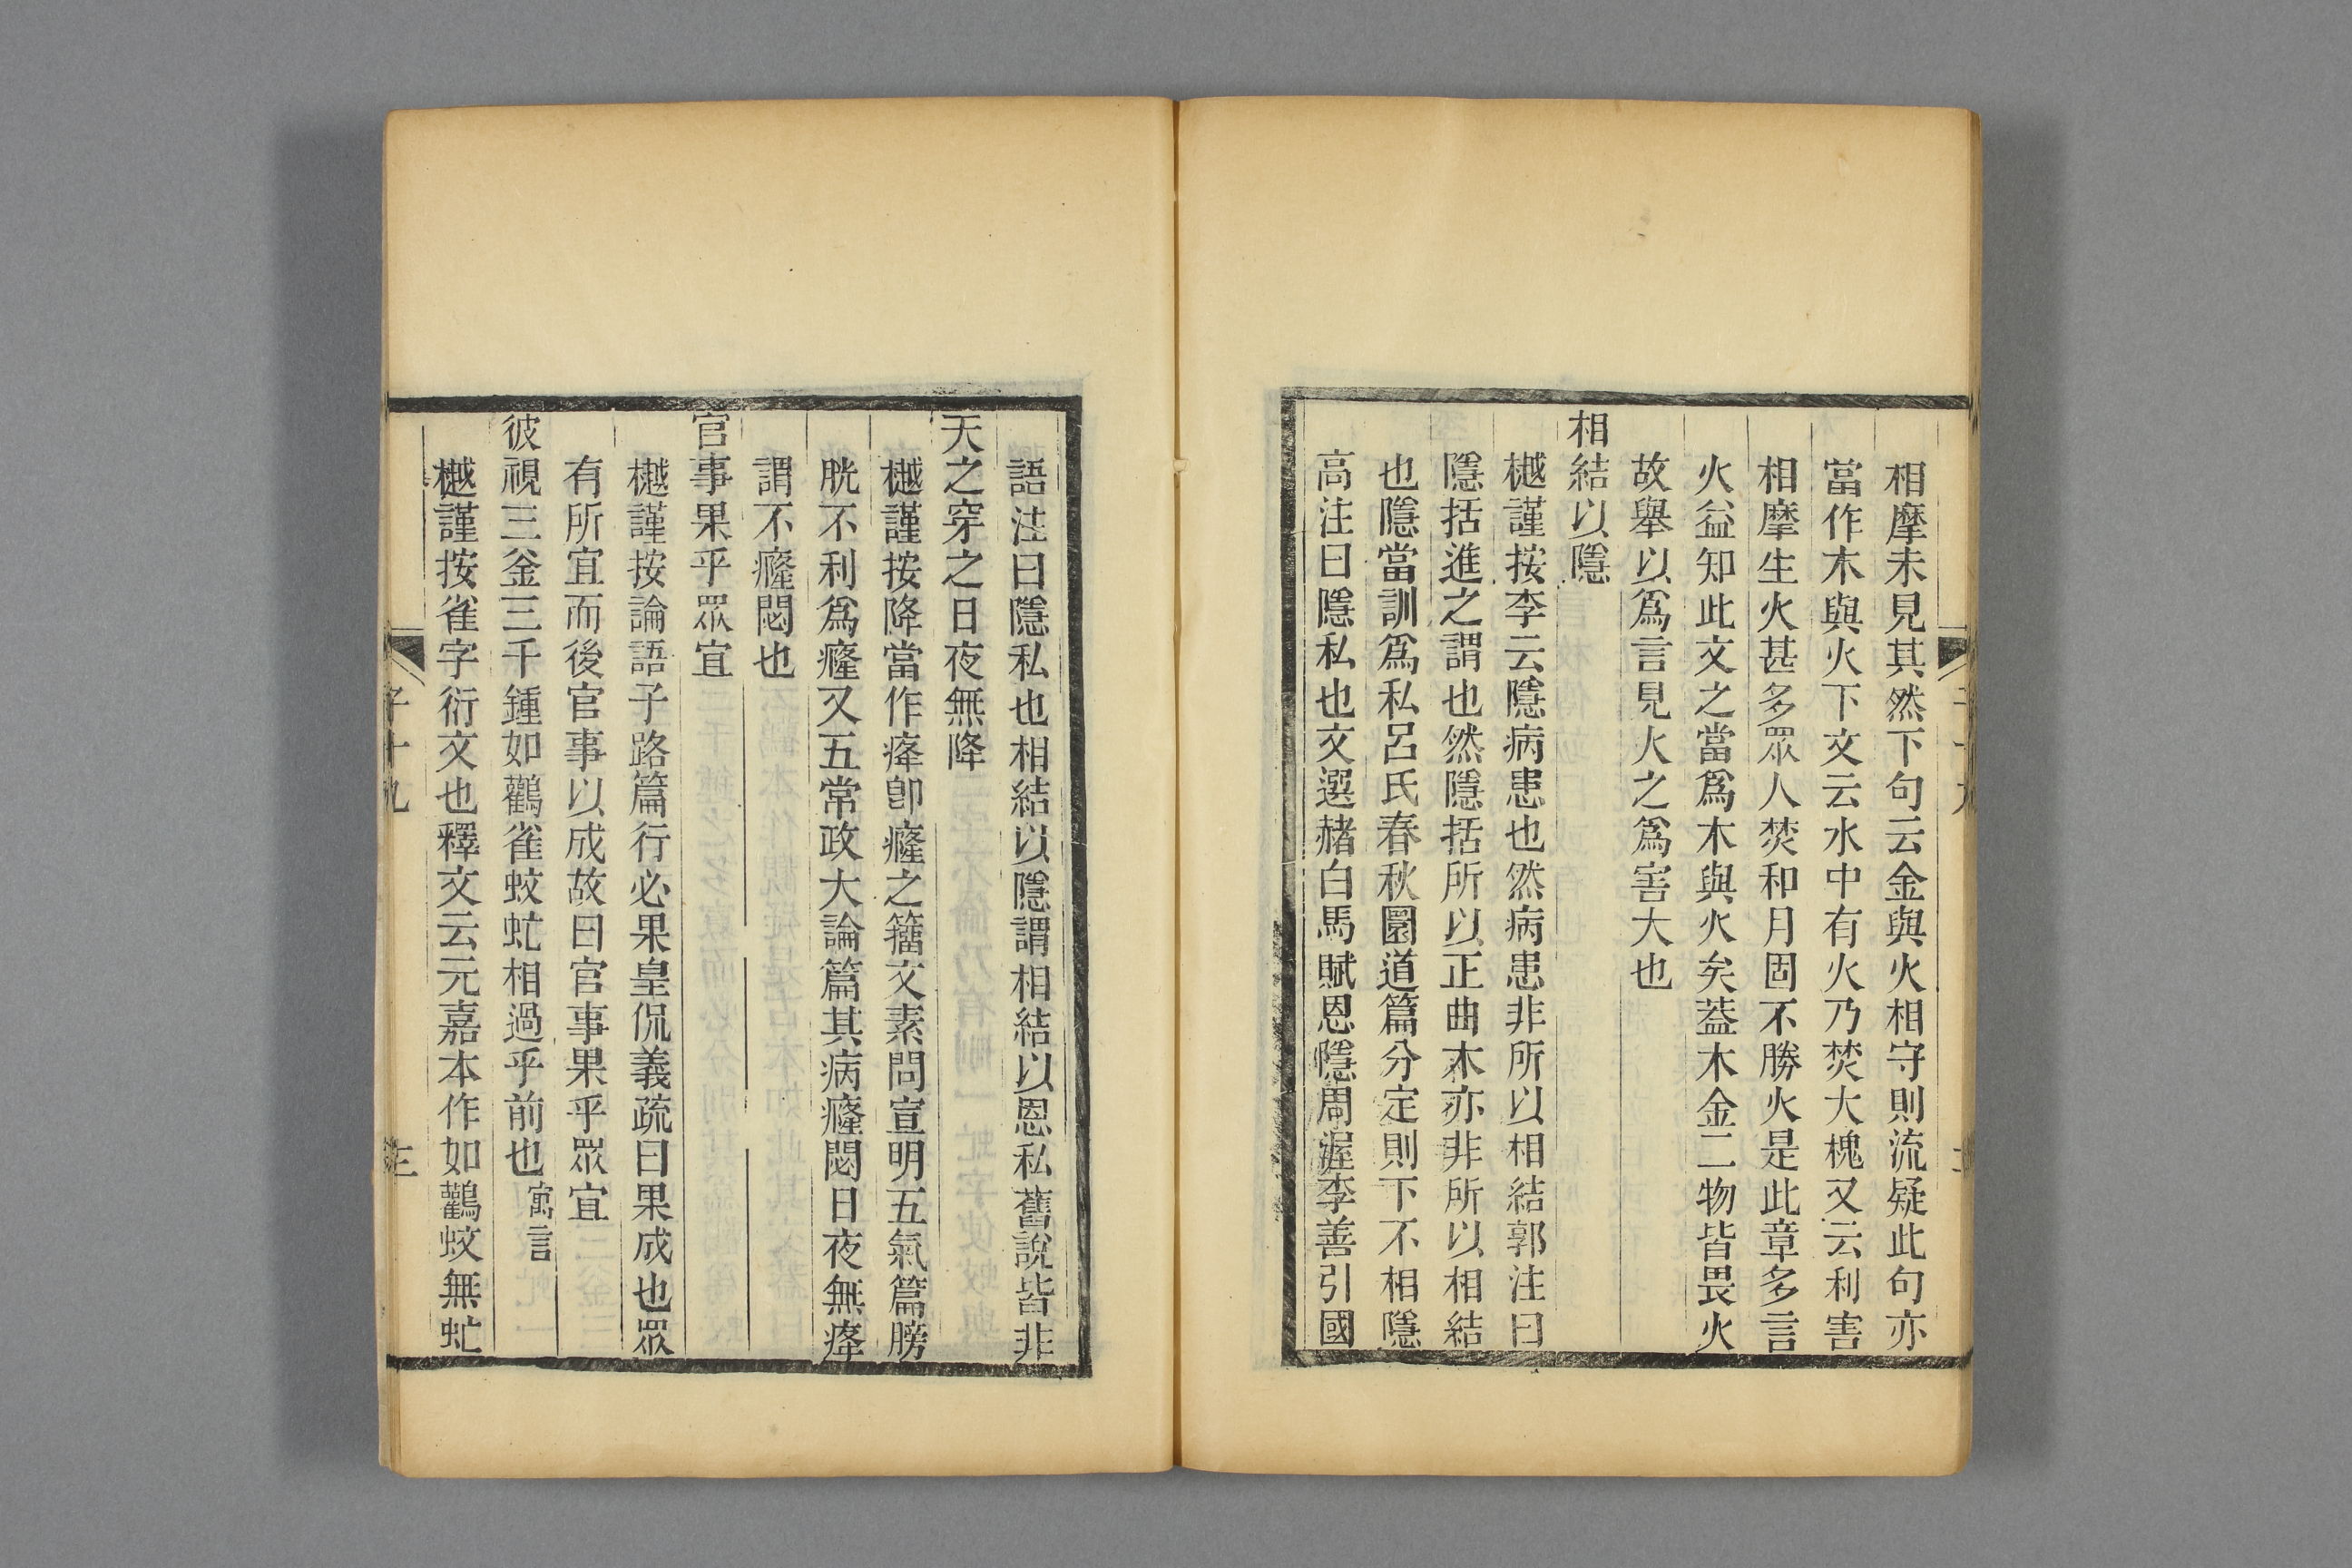 相摩未見其然下句云金與火相守則流疑此句亦
當作木與火下文云水中有火乃焚大槐又云利害
相摩生火甚多眾人焚和月固不勝火是此章多言
火益知此文之當爲木與火矣葢木金二物皆畏火
故舉以爲言見火之爲害大也
相結以隱
樾謹按李云隱病患也然病患非所以相結郭注曰
隱括進之謂也然隱括所以正曲木亦非所以相結
也隱當訓爲私呂氏春秋圜道篇分定則下不相隱
高注曰隱私也文選赭白馬賦恩隱周渥李善引國
語注曰隱私也相結以隱謂相結以恩私舊說皆非
天之穿之日夜無降
樾謹按降當作㾂卽癃之籀文素問宣明五氣篇膀
胱不利爲癃又五常政大論篇其病癃閟日夜無㾂
謂不癃閟也
官事果乎眾宜
樾謹按論語子路篇行必果皇侃義疏曰果成也眾
有所宜而後官事以成故曰官事果乎眾宜
彼視三釜三千鍾如鸛雀蚊虻相過乎前也寓言
樾謹按雀字衍文也釋文云元嘉本作如鸛蚊無虻
子十九
三